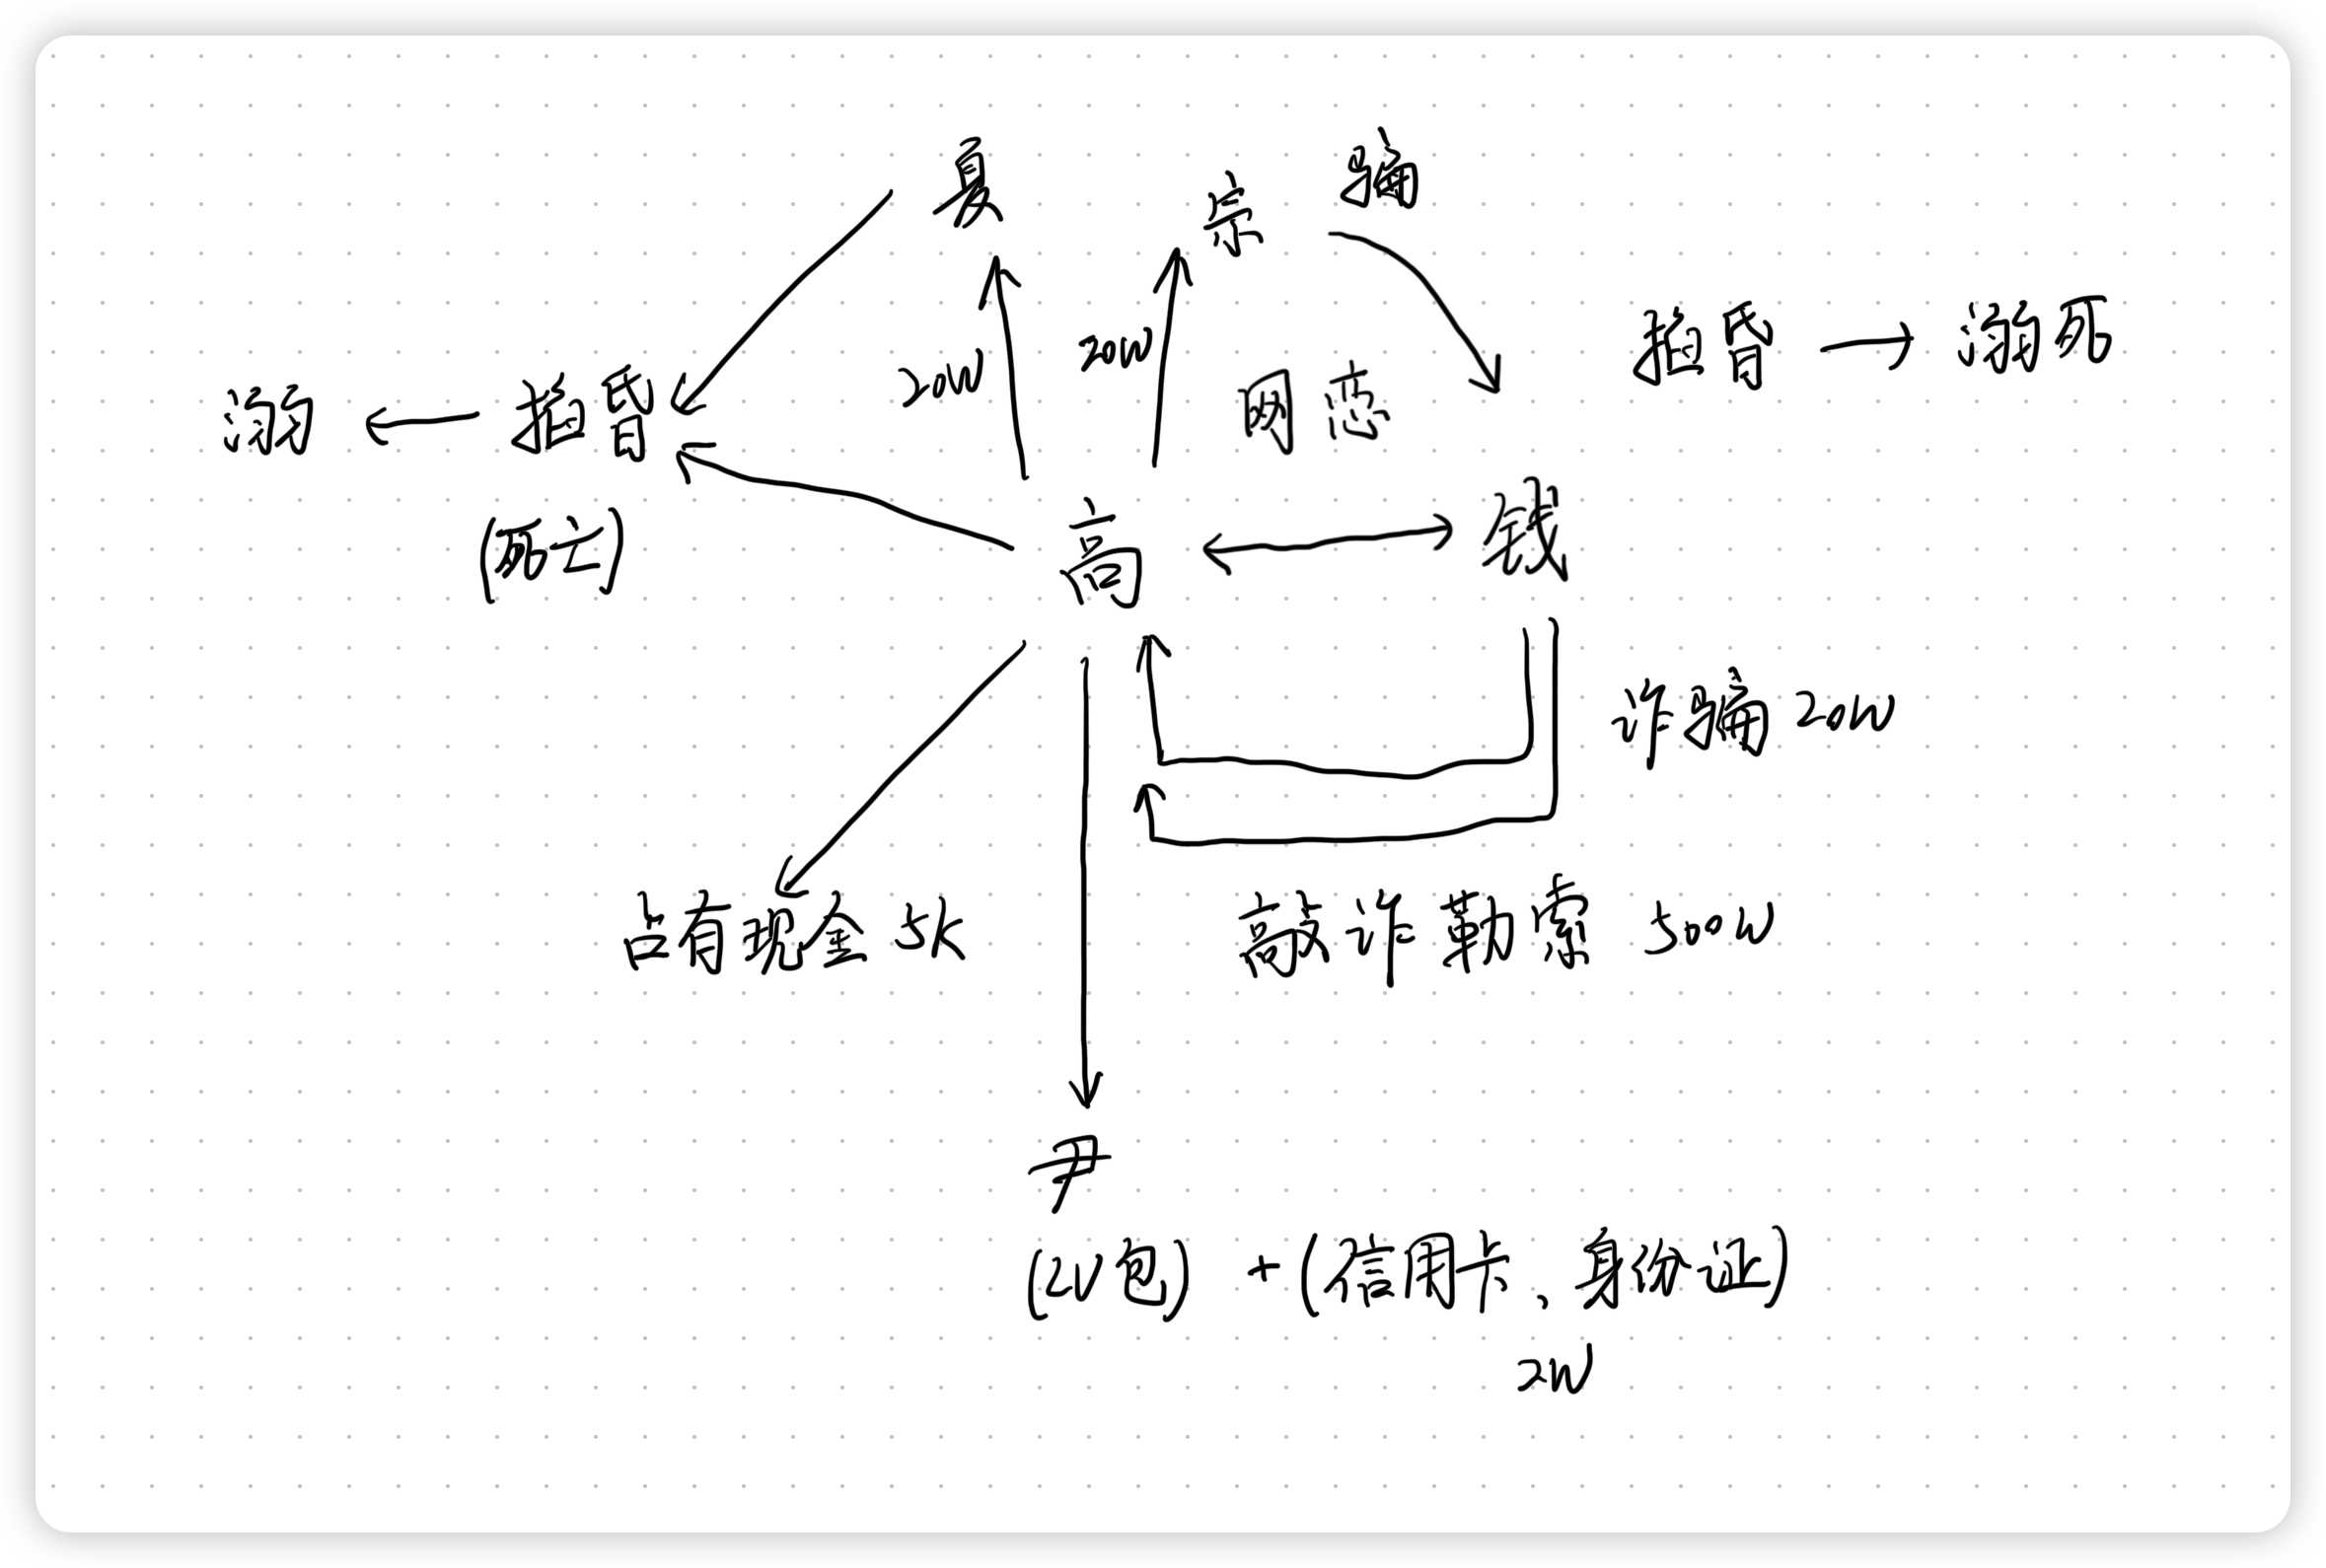 夏 宗 骗
20W 20W
网恋
掐昏 → 溺死
溺 ← 掐昏
(死亡)
高 ↔ 钱
诈骗 20W
占有现金 5K
敲诈勒索 500W
尹
(LV包) + (信用卡、身份证)
2W